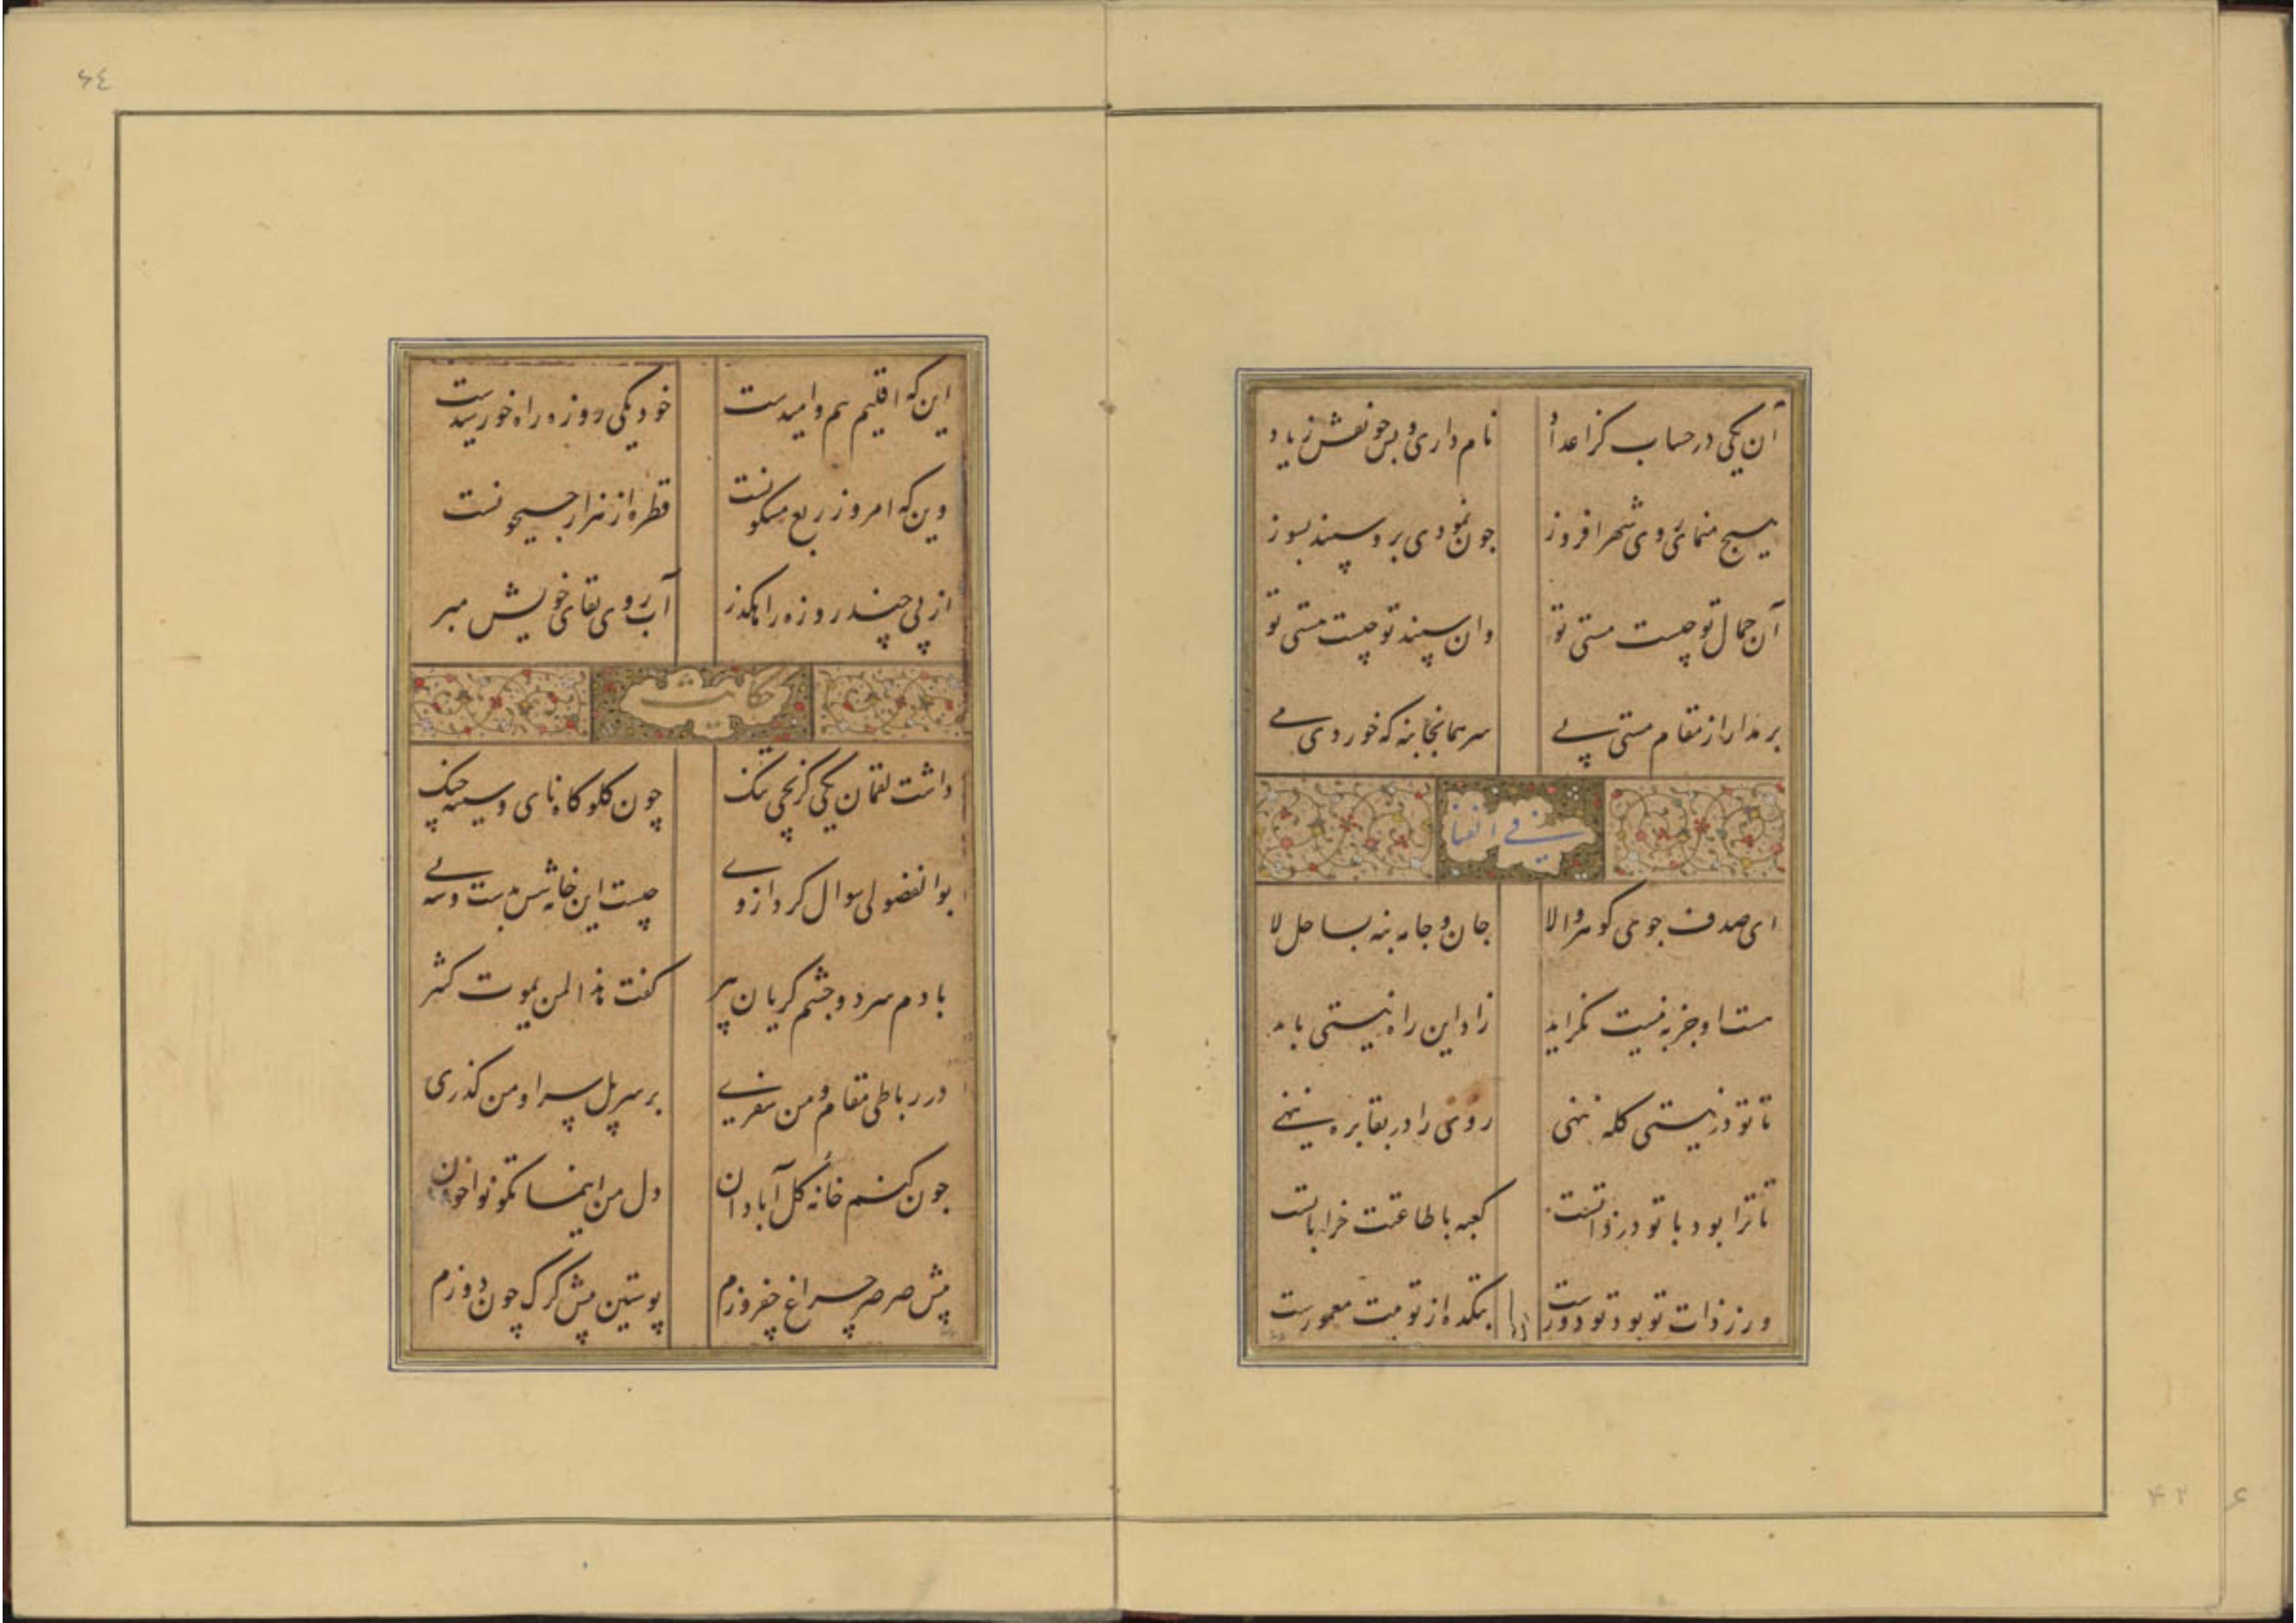 آن یکی در حساب گز اعداد نام داری و بس چو نقش زیاد
هیچ منمای روی شهر افروز چون نمودی برو سپند بسوز
آن جمال تو چیست مستی تو وان سپند تو چیست هستی تو
بر مدار از مقام مستی پی سر همانجا بنه که خوردی می
فی الفنا
ای صدف جوی گوهر والا جان و جامه بنه بساحل لا
هست او جز به نیست نگراید زاد این راه نیستی باید
تا تو در نیستی کله ننهی روی را در بقا بره ننهی
تا ترا بود با تو در ذاتست کعبه با طاعتت خراباتست
ور ز ذات تو بود تو دورست بتکده از تو بیت معمورست
این که اقلیم بیم و امیدست خود یکی روزه راه خورشیدست
وین که امروز ربع مسکونست قطره از هزار جیحونست
از پی چند روزه راهگذر آب روی بقای خویش مبر
حکایت
داشت لقمان یکی کریجی تنگ چون گلوگاه نای و سینه چنگ
بوالفضولی سوال کرد از وی چیست این خانه شش بدست و سه پی
با دم سرد و چشم گریان پیر گفت هذا لمن یموت کثیر
در رباطی مقام و من سفری بر سر پل سرا و من گذری
چون کنم خانه گل آبادان دل من اینما تکونوا خوان
پیش صرصر چراغ چفروزم پوستین پیش گرگ چون دوزم
۶۴